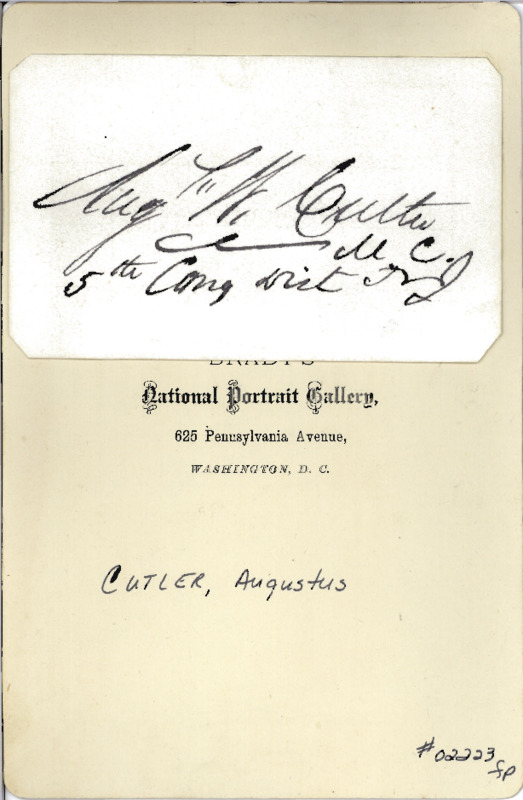 Aug. W. Cutler
M. C.
5th Cong Dist N J
BRADY'S
National Portrait Gallery,
625 Pennsylvania Avenue,
WASHINGTON, D. C.
CUTLER, Augustus
#02223
fp